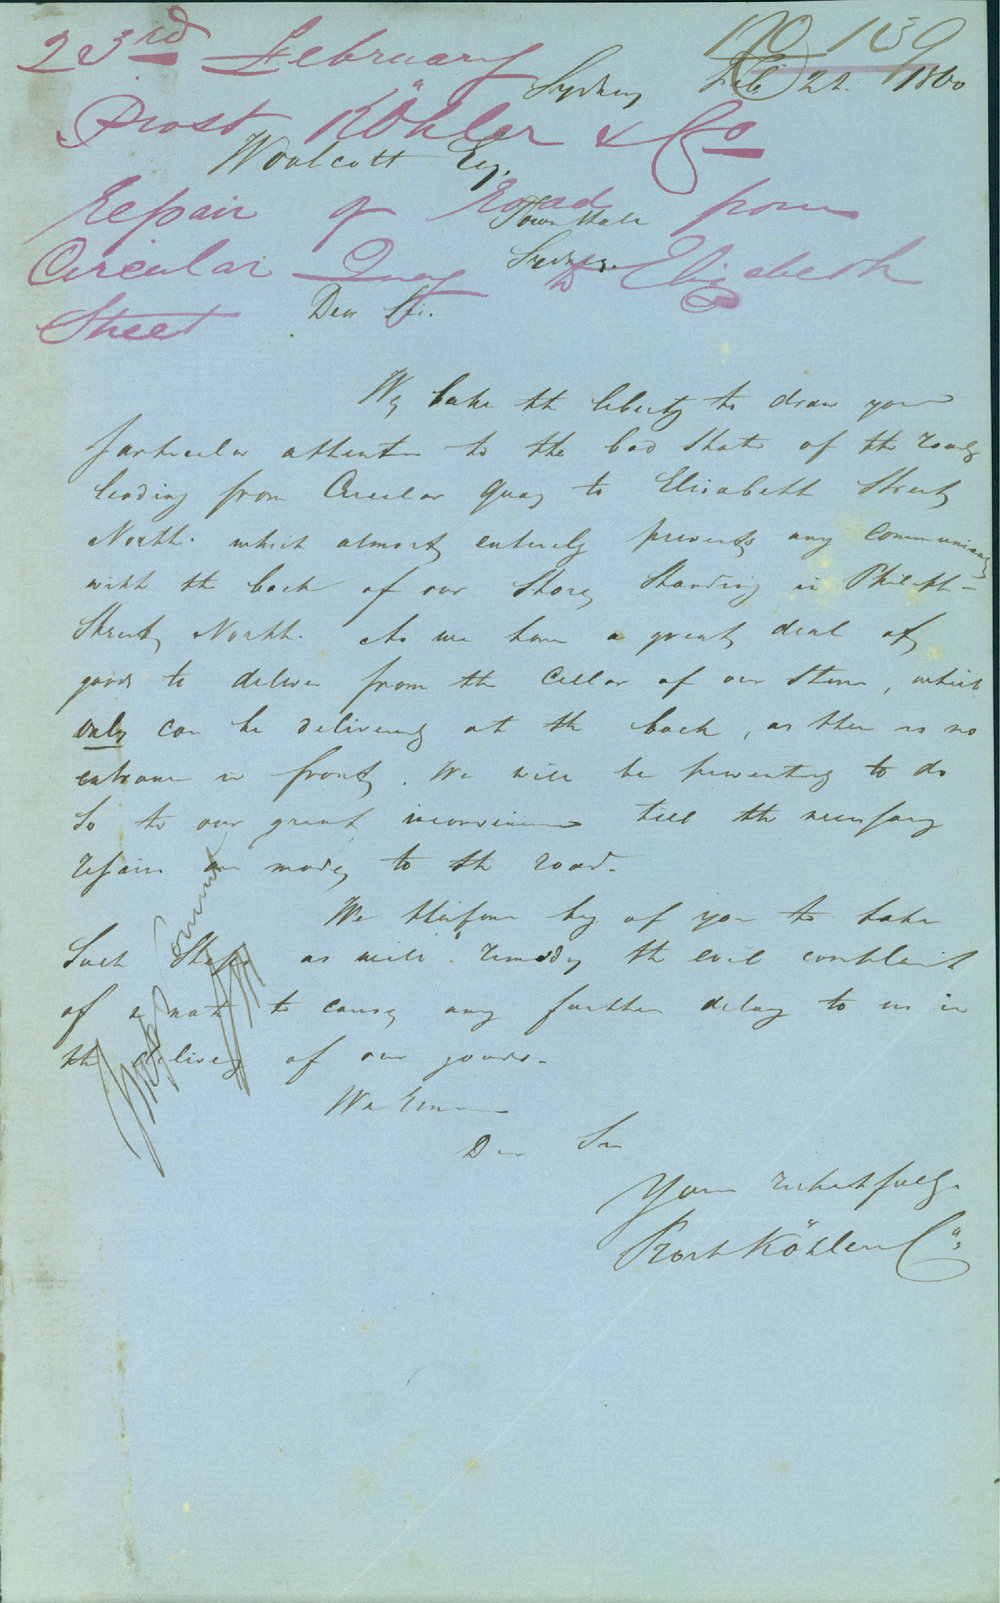 No 159
23rd February
Sydney Feb 22. 1860
Prost Köhler & Co
Woolcott Esq.
Repair of Road from
Town Hall
Circular Quay to Elizabeth
Sydney.
Street
Dear Sir.
We take the liberty to draw your
particular attention to the bad state of the road
leading from Circular Quay to Elisabeth Street
North. which almost entirely prevents any
with the back of our Store standing in Phillip
Street North. As we have a great deal of
goods to deliver from the Cellar of our Store, which
only can be delivered at the back, as there is no
entrance in front. We will be prevented to do
so to our great inconvenience till the necessary
repairs are made to the road.
We therefore beg of you to take
such Steps as will remedy the evil complaint
of & not to cause any further delay to us in
the delivery of our goods.
We remain
Dear Sir
Yours respectfully
Prost Köhler & Co